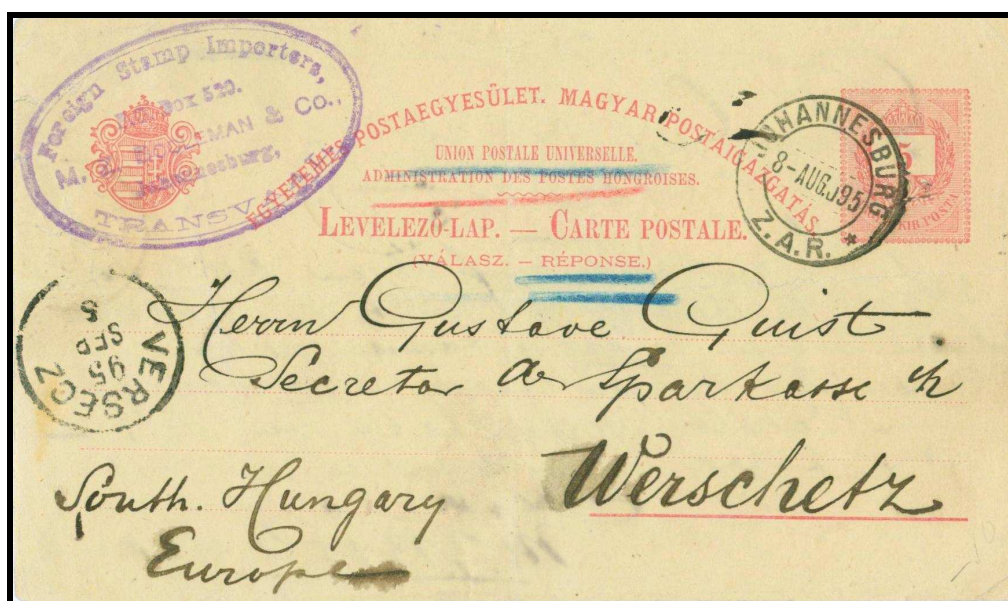 Foreign Stamp Importers,
Box 520.
M. & Co.,
Johannesburg,
TRANSVAAL
EGYETEMES POSTAEGYESÜLET. MAGYAR POSTAIGAZGATÁS.
UNION POSTALE UNIVERSELLE.
ADMINISTRATION DES POSTES HONGROISES.
LEVELEZŐ-LAP. — CARTE POSTALE.
(VÁLASZ. – RÉPONSE.)
JOHANNESBURG
8-AUG.95
Z.A.R. *
5
KIR. POSTA
Herrn Gustave Guist
Secretar der Sparkasse in
Werschetz
South. Hungary
Europe
VERSECZ
95
SEP
5